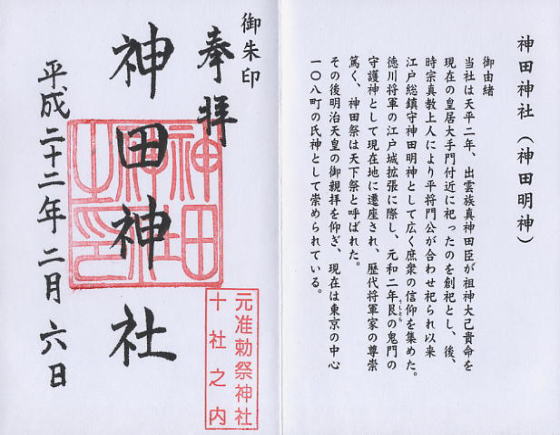 神田神社（神田明神）
御由緒
当社は天平二年、出雲族真神田臣が祖神大己貴命を
現在の皇居大手門付近に祀ったのを創祀とし、後、
時宗真教上人により平将門公が合わせ祀られ以来
江戸総鎮守神田明神として広く庶衆の信仰を集めた。
徳川将軍の江戸城拡張に際し、元和二年艮の鬼門の
うしとら
守護神として現在地に遷座され、歴代将軍家の尊崇
篤く、神田祭は天下祭と呼ばれた。
その後明治天皇の御親拝を仰ぎ、現在は東京の中心
一〇八町の氏神として崇められている。
御朱印
奉拝
神田神社
平成二十二年二月六日
神田神社之印
元准勅祭神社
十社之内